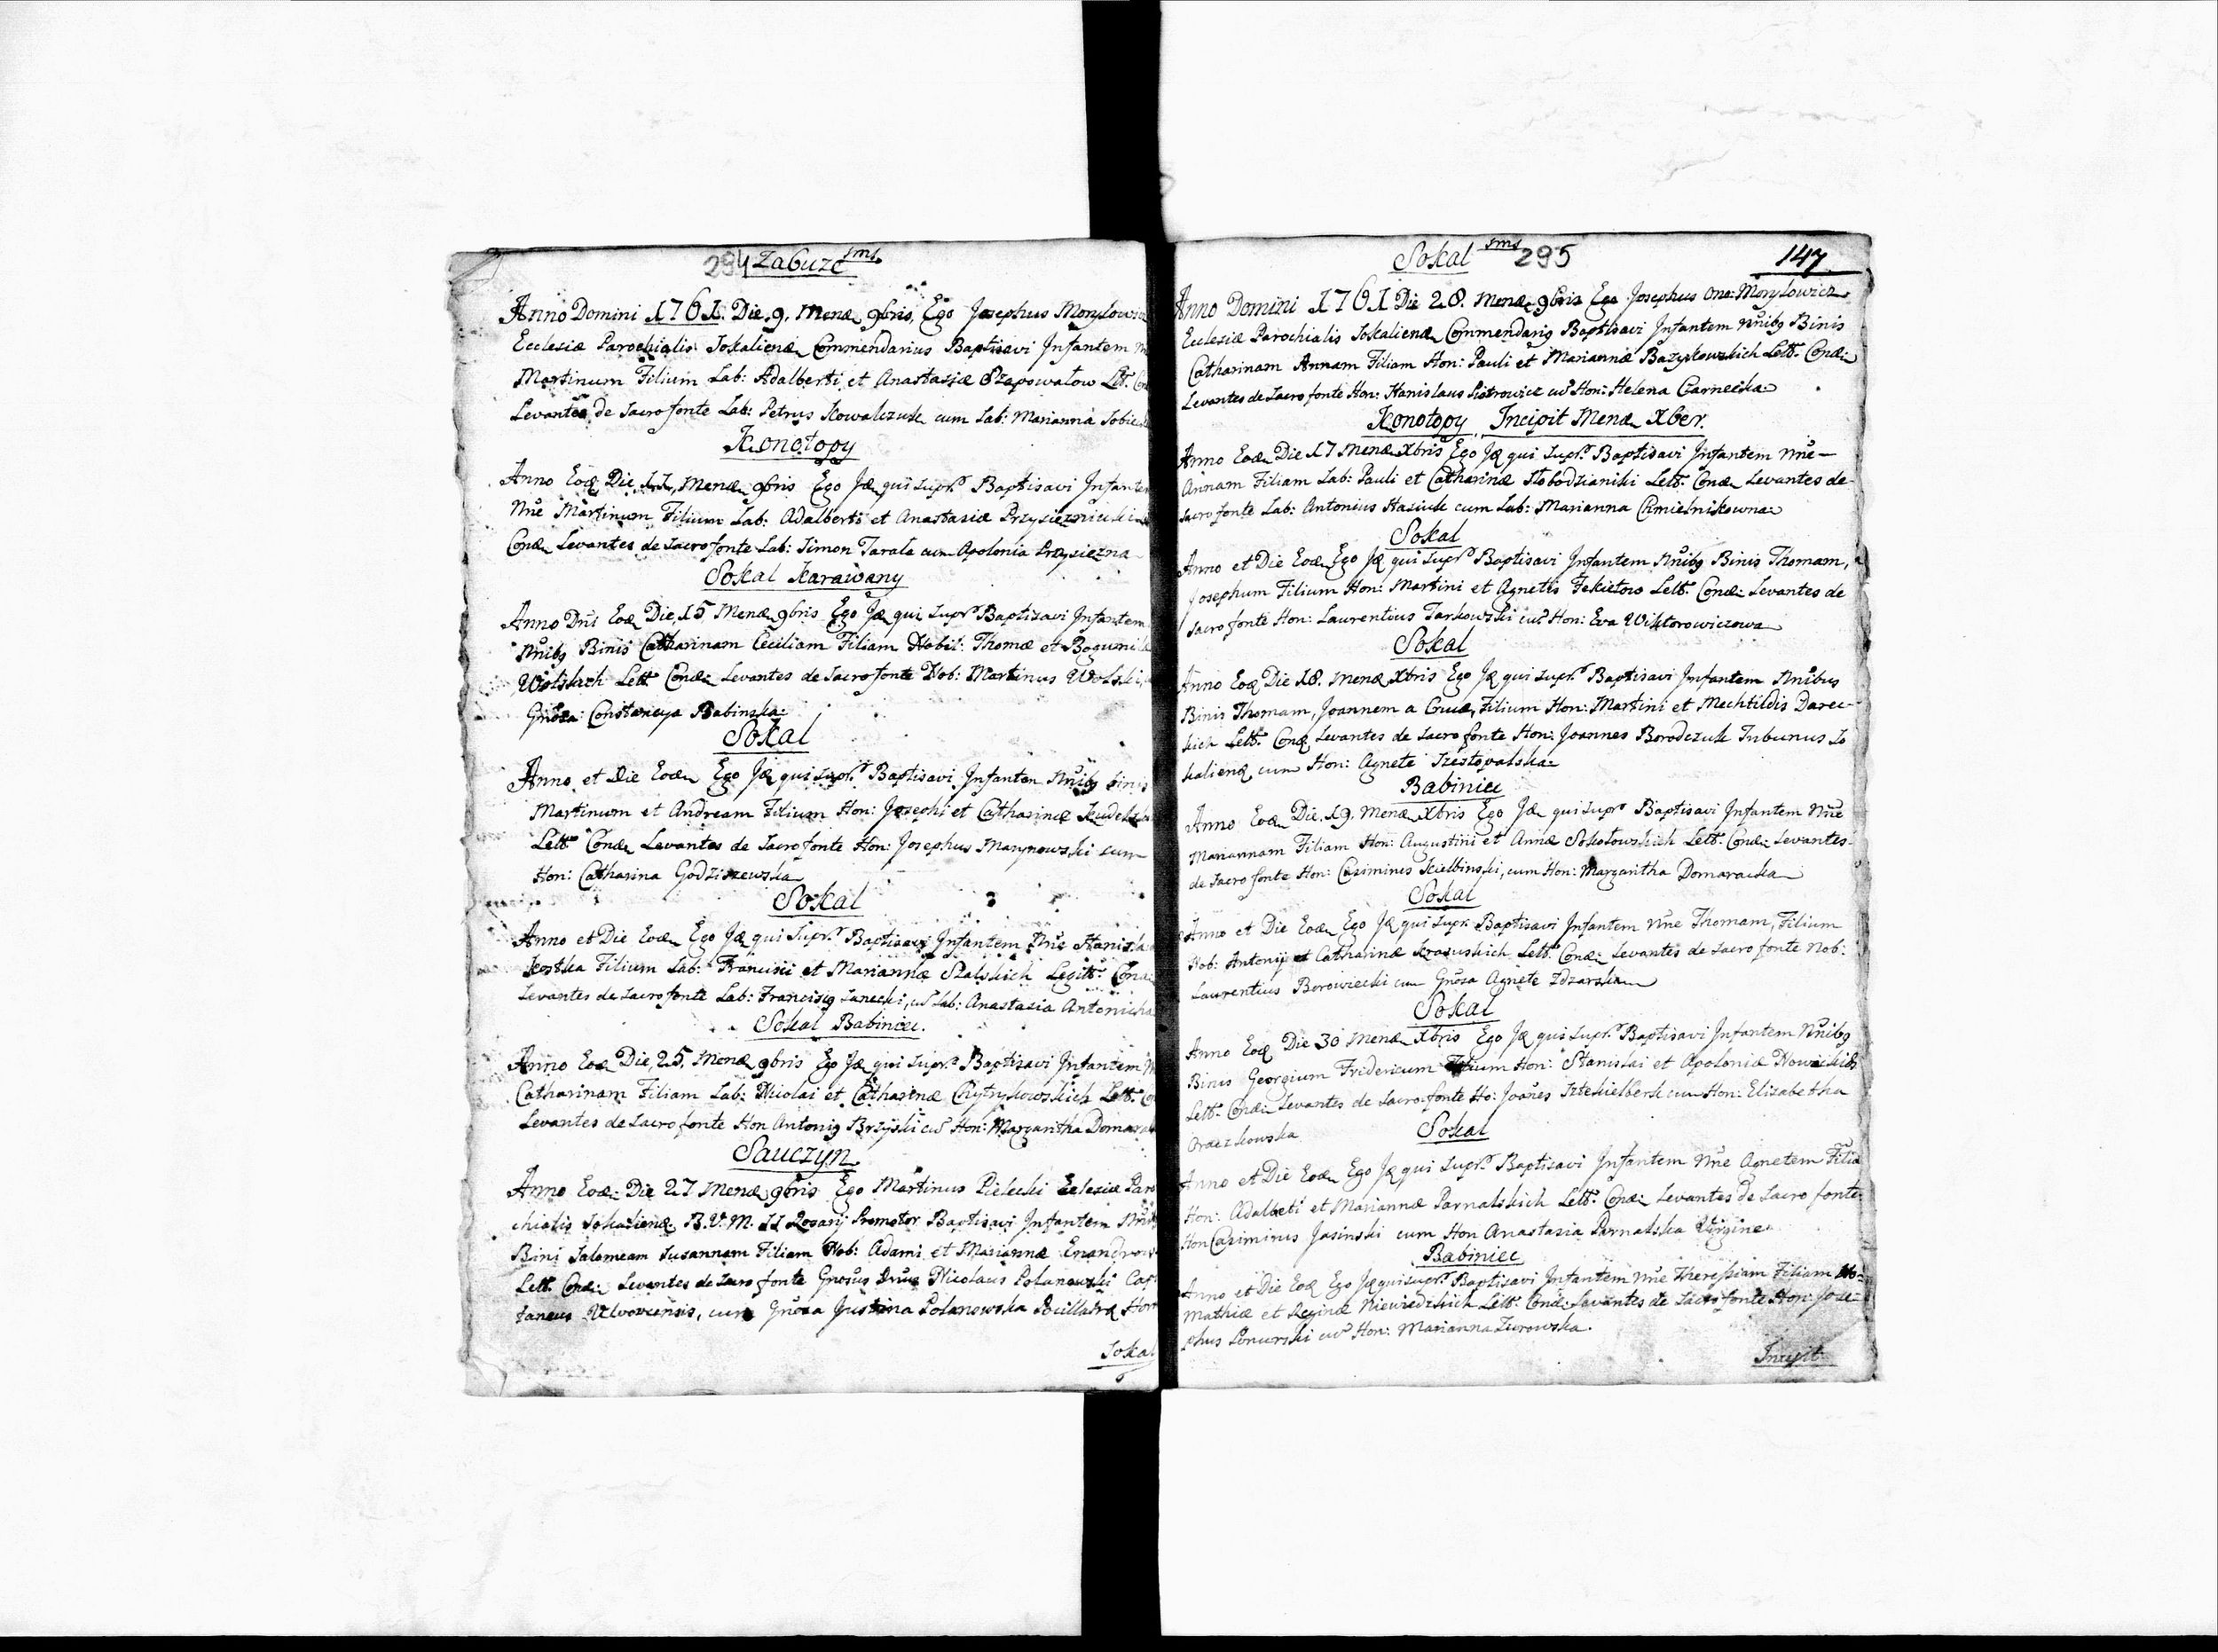 294 Zabuże sms.
Anno Domini 1761. Die. 9. Mensæ 9bris, Ego Josephus Morylowicz
Ecclesiæ Parochialis Sokaliensæ Commendarius Baptisavi Infantem
Martinum Filium Lab: Adalberti et Anastasiæ Szapowalow
Levantes de Sacro fonte Lab: Petrus Kowalczuk cum Lab: Marianna
Konotopy
Anno Eoæ Die 11, Mensæ 9bris Ego Jæ qui supr. Baptisavi Infantem
Nne Martinum Filium Lab: Adalberti et Anastasiæ
Conæ Levantes de Sacro fonte Lab: Simon Tarala cum Apolonia
Sokal Karawany
Anno Dni Eoæ Die, 15 Mensæ 9bris Ego Jæ qui supr. Baptisavi Infantem
Nnibg Binis Catharinam Ceciliam Filiam Nobil: Thomæ et
Wolskich Lett. Conæ: Levantes de Sacro fonte Nob: Martinus Wolski,
Gnosa: Constancya Babinska:
Sokal
Anno et Die Eoæ Ego Jæ qui supr. Baptisavi Infantem Nnibg binis
Martinum et Andream Filium Hon: Josephi et Catharinæ
Lett. Conæ Levantes de Sacro fonte Hon: Josephus Marynowski cum
Hon: Catharina Godziszewska
Sokal
Anno et Die Eoæ Ego Jæ qui supr. Baptisavi Infantem Nne
Kostka Filium Lab: Francisci et Mariannæ Szalskich Legitt. Conæ:
Levantes de Sacro fonte Lab: Franciscg Janecki, cu Lab: Anastasia
Sokal Babiniec.
Anno Eoæ Die, 25, Mensæ 9bris Ego Jæ qui supr. Baptisavi Infantem
Catharinam Filiam Lab: Nicolai et Catharinæ Chytrykowskich Lett.
Levantes de Sacro fonte Hon Antonig Brzyski cu Hon: Margaritha
Sauczyn
Anno Eoæ: Die 27 Mensæ 9bris Ego Martinus Pielecki Eclesiæ Paro
chialis Sokaliensæ B. V. M. SS Rosarij Promotor Baptisavi Infantem
Bini Salomeam Susannam Filiam Nob: Adami et Mariannæ
Lett. Conæ: Levantes de Sacro fonte Gnosus Dnus Nicolaus Polanowski
taneus cum Gnosa Justina Polanowska
Sokal
Sokal sms 295 147
Anno Domini 1761 Die 28. Mensæ 9bris Ego Josephus Morylowicz
Ecclesiæ Parochialis Sokaliensæ Commendarig Baptisavi Infantem Nnibg Binis
Catharinam Annam Filiam Hon: Pauli et Mariannæ Lett. Conæ:
Levantes de Sacro fonte Hon: Stanislaus Piotrowicz cu Hon: Helena Czarnecka:
Konotopy Incipit Mensæ Xber.
Anno Eoæ Die 17 Mensæ Xbris Ego Jæ qui supr. Baptisavi Infantem Nne
Annam Filiam Lab: Pauli et Catharinæ Slobodzianiki Lett. Conæ Levantes de
sacro fonte Lab: Antonius Hasiuk cum Lab: Marianna Chmielnikowna:
Sokal
Anno et Die Eoæ Ego Jæ qui supr. Baptisavi Infantem Nnibg Binis Thomam,
Josephum Filium Hon: Martini et Agnetis Lett. Conæ: Levantes de
sacro fonte Hon: Laurentius Tarkowski cu Hon: Eva Wiktorowiczowa
Sokal
Anno Eoæ Die 18. Mensæ Xbris Ego Jæ qui supr. Baptisavi Infantem Nnibus
Binis Thomam, Joannem a Cruce, Filium Hon: Martini et Mechtildis Darec-
kich Lett. Conæ, Levantes de sacro fonte Hon: Joannes Borodczuk Tribunus So
kaliensæ cum Hon: Agnete
Babiniec
Anno Eoæ Die. 19. Mensæ Xbris Ego Jæ qui supr Baptisavi Infantem Nne
Mariannam Filiam Hon: Augustini et Annæ Sokołowskich Lett. Conæ: Levantes
de Sacro fonte Hon: Casimirus Kielbinski, cum Hon: Margaritha Domaracka
Sokal
Anno et Die Eoæ Ego Jæ qui supr. Baptisavi Infantem Nne Thomam, Filium
Nob: Antonij et Catharinæ Krasuskich Lett. Conæ: Levantes de sacro fonte Nob:
Laurentius Borowiecki cum Gnosa Agnete Zdzarska
Sokal
Anno Eoæ Die 30 Mensæ Xbris Ego Jæ qui supr. Baptisavi Infantem Nnibg
Binis Georgium Fridericum Filium Hon: Stanislai et Apoloniæ Nowickich
Lett. Conæ: Levantes de sacro fonte Ho: Joanes cum Hon: Elizabetha
Sokal
Anno et Die Eoæ Ego Jæ qui supr. Baptisavi Infantem Nne Agnetem Filia
Hon: Adalbeti et Mariannæ Parnalskich Lett. Conæ: Levantes de Sacro fonte
Hon Casimirus Jasinski cum Hon Anastasia Parnalska Virgine
Babiniec
Anno et Die Eoæ Ego Jæ qui supr. Baptisavi Infantem Nne Theressiam Filiam Ho:
Mathiæ et Reginæ Niewiedzkich Lett. Conæ: Levantes de Sacro fonte Hon: Jose-
phus Ponurski cu Hon: Marianna Zurowska.
Incipit